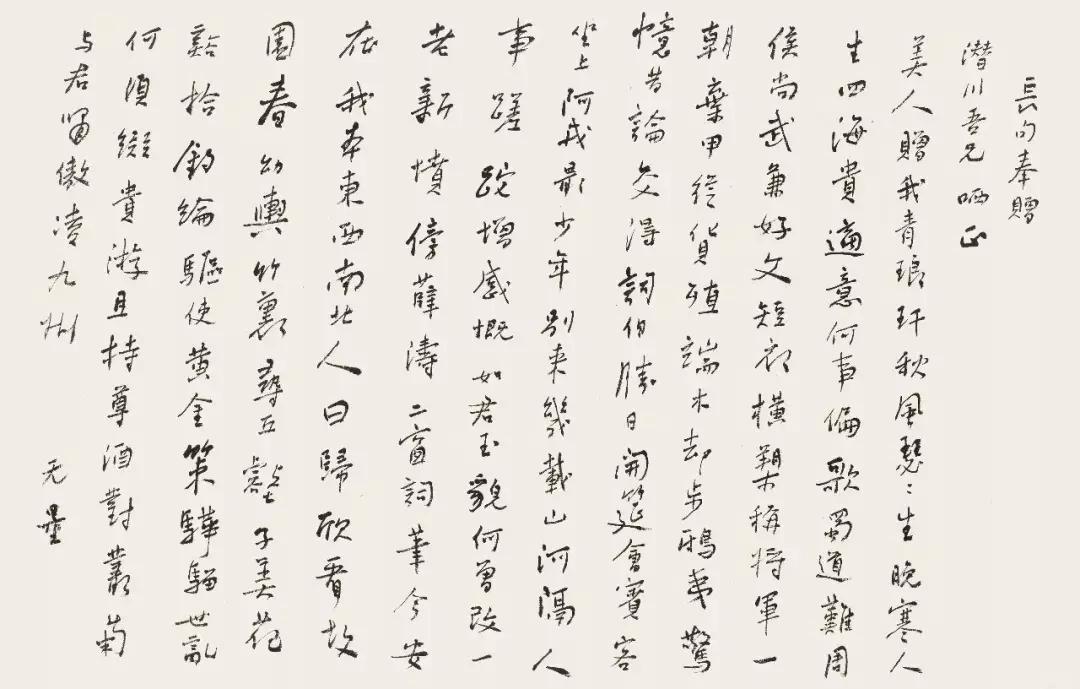 長句奉贈
潛川吾兄哂正
美人贈我青琅玕秋風瑟〻生晚寒人
生四海貴適意何事偏歌蜀道難周
侯尚武兼好文短衣橫槊稱將軍一
朝棄甲從貨殖端木却步鴉夷驚
憶昔論交得詞伯勝日開筵會賓客
坐上阿戎最少年別来幾載山河隔人
事蹉跎增感概如君玉貌何曾改一
老新墳傍薛濤二窗詞筆今安
在我本東西南北人曰歸欣看故
園春幼輿竹裏尋丘壑子美花
谿拾釣綸驅使黄金策驊騮世亂
何須綴貴游且持尊酒對叢菊
与君嘯傲凌九州
无量